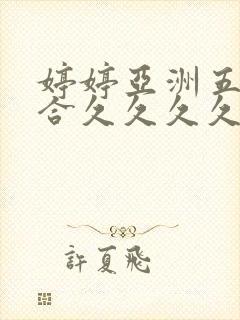 婷婷亞洲五
合久久久久
許夏飛